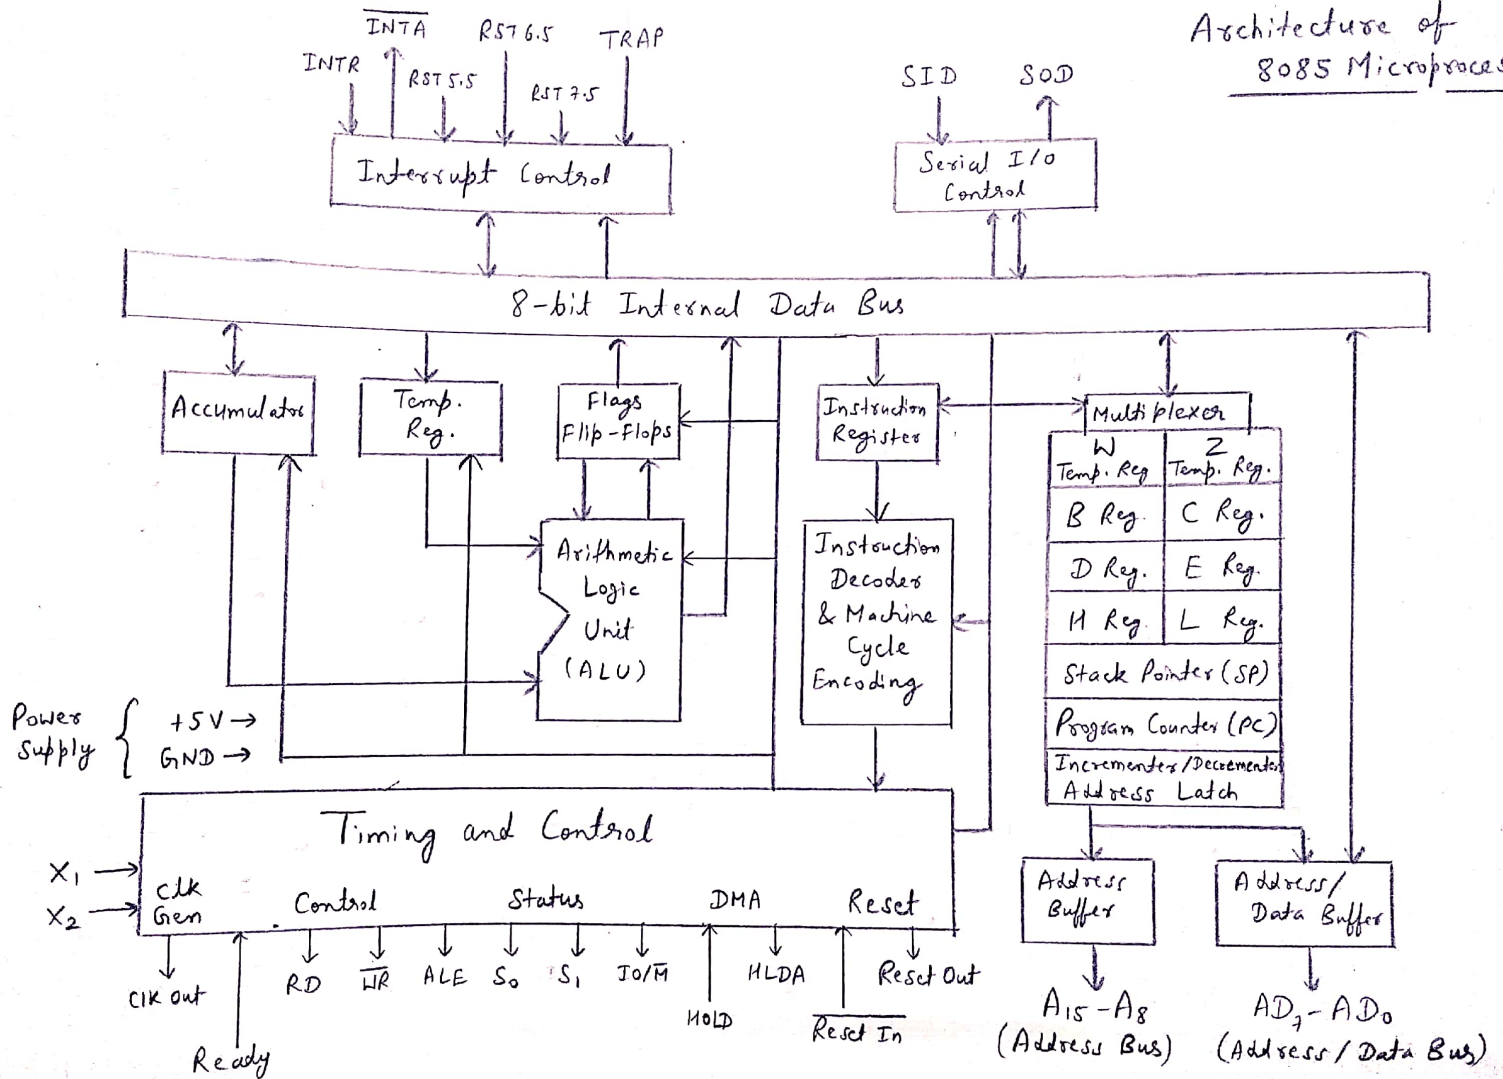 Architecture of
8085 Microproces
INTA
RST 6.5
TRAP
INTR
RST 5.5
RST 7.5
SID
SOD
Interrupt Control
Serial I/O
Control
8-bit Internal Data Bus
Accumulator
Temp.
Reg.
Flags
Flip-Flops
Instruction
Register
Multiplexer
W
Temp. Reg
Z
Temp. Reg.
B Reg.
C Reg.
D Reg.
E Reg.
H Reg.
L Reg.
Stack Pointer (SP)
Program Counter (PC)
Incrementer/Decrementer
Address Latch
Arithmetic
Logic
Unit
(ALU)
Instruction
Decoder
& Machine
Cycle
Encoding
Power
Supply
+5V
GND
Timing and Control
X1
X2
Clk
Gen
Control
Status
DMA
Reset
Address
Buffer
Address/
Data Buffer
Clk Out
Ready
RD
W̅R̅
ALE
S0
S1
IO/M̅
HOLD
HLDA
Reset In
Reset Out
A15-A8
(Address Bus)
AD7-AD0
(Address / Data Bus)